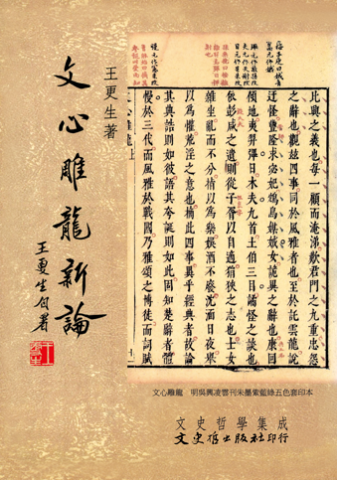 王更生著
文心雕龍新論
王更生自署
比興之義也每一顧而淹涕歎君門之九重忠怨
之辭也觀茲四事同於風雅者也至於託雲龍說
迂怪豐隆求宓妃鴆鳥媒娀女詭異之辭也康回
傾地夷羿彈日木夫九首土伯三目譎怪之談也
依彭咸之遺則從子胥以自適狷狹之志也士女
雜坐亂而不分指以為樂娛酒不廢沈湎日夜舉
以為懽荒淫之意也摘此四事異乎經典者故論
其典誥則如彼語其夸誕則如此固知楚辭者體
慢於三代而風雅於戰國乃雅頌之博徒而詞賦
文心雕龍上
文心雕龍 明吳興凌雲刊朱墨紫藍綠五色套印本
文史哲學集成
文史哲出版社印行